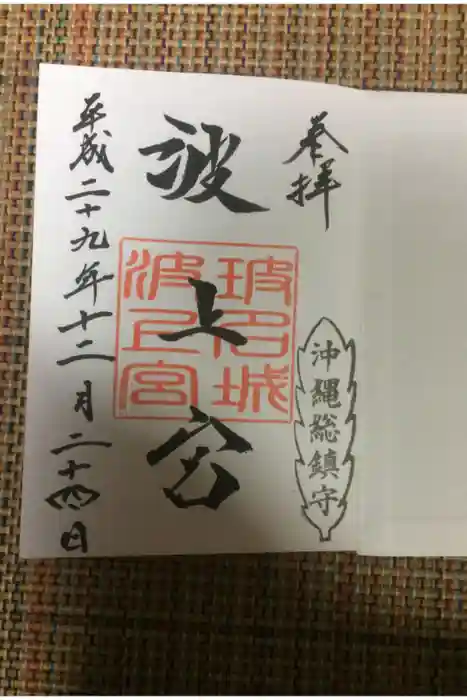 奉拝
沖縄総鎮守
波上宮
玻名城
波上宮
平成二十九年十二月二十四日